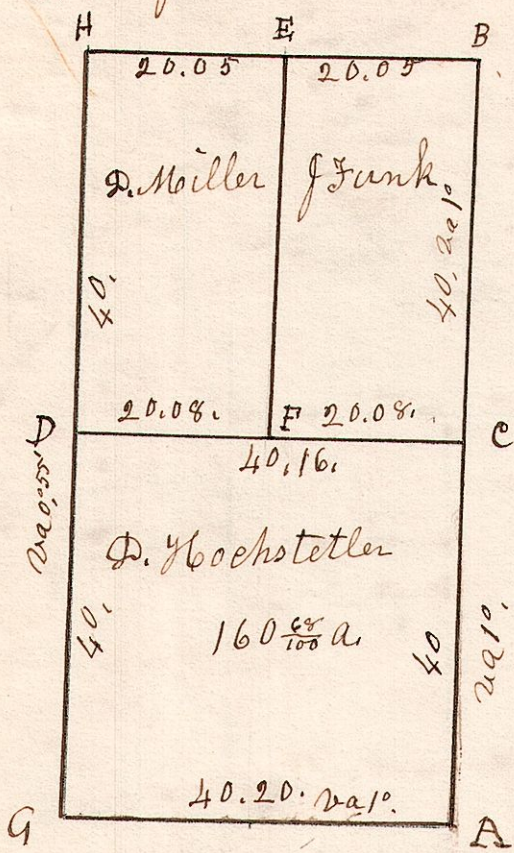 H E B
20.05 20.05
D. Miller J Funk
40. 40, va 1°
20.08. F 20.08.
D C
40,16.
va 0.°55.
D. Hochstetler
160 68/100 a.
40, 40 va 1°.
40.20. va 1°.
G A